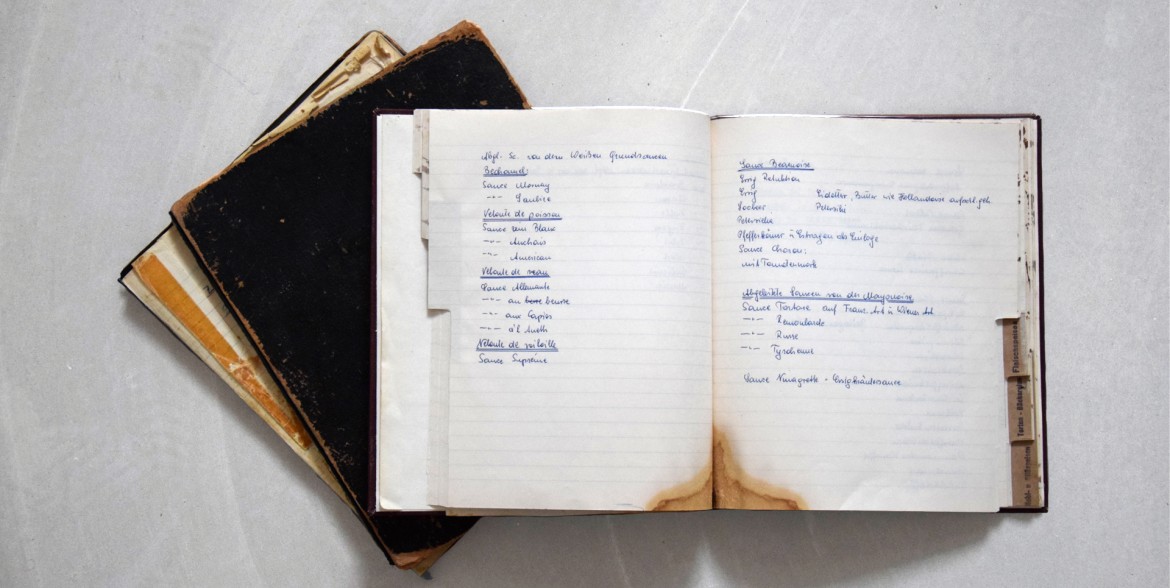 Abgl. Sc. von dem Weißen Grundsaucen
Bechamel:
Sauce Mornay
-"- Soubise
Veloute de poisson
Sauce vin Blanc
-"- Anchois
-"- American
Veloute de veau
Sauce Allemande
-"- au beurre
-"- aux Capres
-"- a l'Aneth
Veloute de volaille
Sauce Supreme
Sauce Bearnaise
Essig Reduktion
Essig Eidotter, Butter wie Hollandaise
Petersilie
Petersilie
Pfefferkörner u Estragon als Einlage
Sauce Choron:
mit Tomatenmark
Abgeleitete Saucen von der Mayonaise
Sauce Tartare auf Franz. Art u Wiener Art
-"- Remoulade
-"- Russe
-"- Tyrolienne
Sauce Vinagrette - Essigkräutersauce
Fleischspeisen